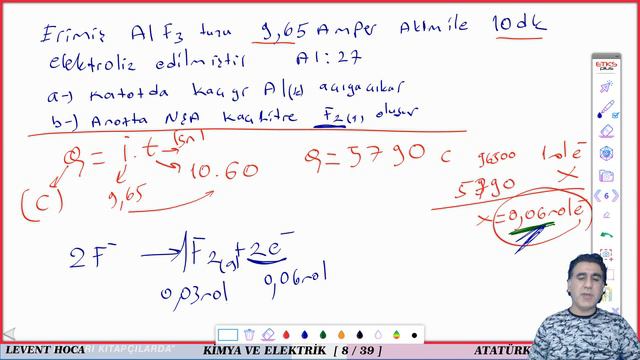 Erimiş AlF3 tuzu 9,65 Amper Akım ile 10dk
elektroliz edilmiştir Al:27
a-) Katotda kaç gr Al(k) açığa çıkar
b-) Anotta NŞA kaç litre F2(g) oluşur
Q = i.t (sn)
(C) 9,65 10.60
Q = 5790 C
96500 1 mol ē
5790 x
x = 0,06 mol ē
2F⁻ → 1F2(g) + 2e⁻
0,03mol 0,06mol
ETKS plus
6
LEVENT HOCA
KİMYA VE ELEKTRİK [ 8 / 39 ]
ATATÜRK